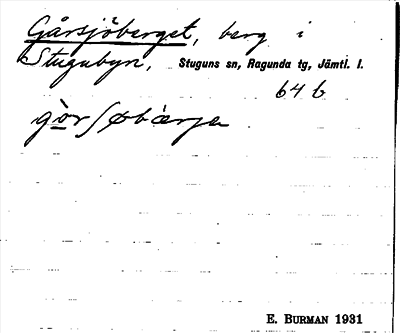 Gårsjöberget, berg i
Stugubyn, Stuguns sn, Ragunda tg, Jämtl. l.
64 b
gòrʃøbàrja
E. BURMAN 1931